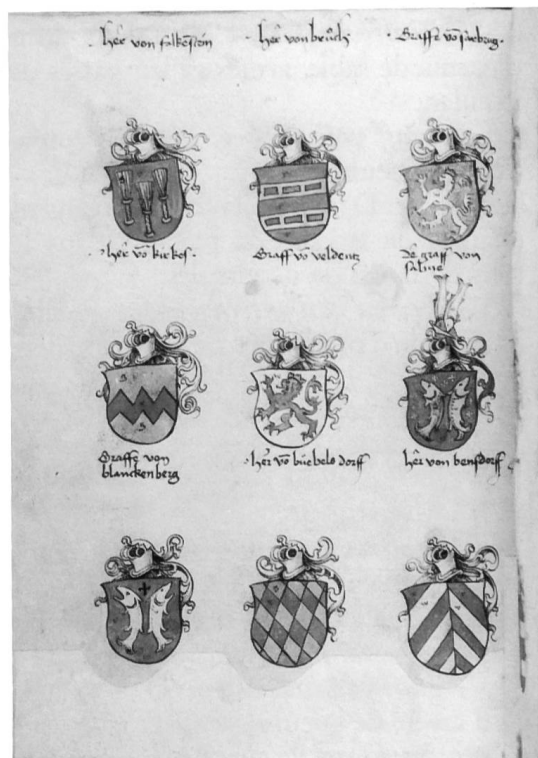 her von falkestein
her von bruch
Graffe vō sarbrug
her vō kirkes
Graff vō veldentz
De graff von
salme
Graffe von
blanckenberg
her vō büebelsdorff
her von bensdorff